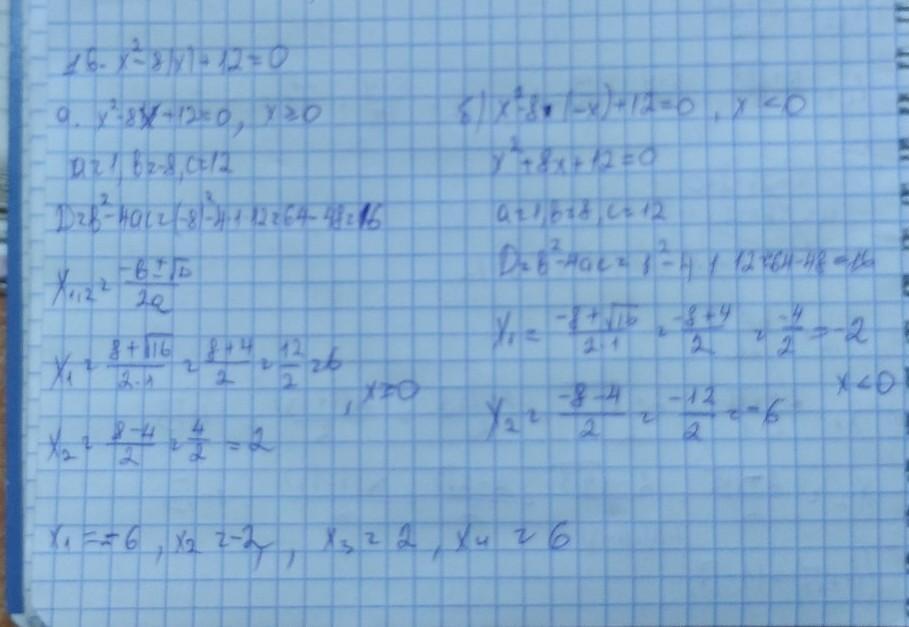 16. x²-8|x|+12=0
а. x²-8x+12=0, x≥0
a=1, b=-8, c=12
D=b²-4ac=(-8)²-4·1·12=64-48=16
x₁,₂=(-b±√D)/2a
x₁=(8+√16)/(2·1)=(8+4)/2=12/2=6
, x≥0
x₂=(8-4)/2=4/2=2
б) x²-8·(-x)+12=0, x<0
x²+8x+12=0
a=1, b=8, c=12
D=b²-4ac=8²-4·1·12=64-48=16
x₁=(-8+√16)/(2·1)=(-8+4)/2=-4/2=-2
x<0
x₂=(-8-4)/2=-12/2=-6
x₁=-6, x₂=-2, x₃=2, x₄=6